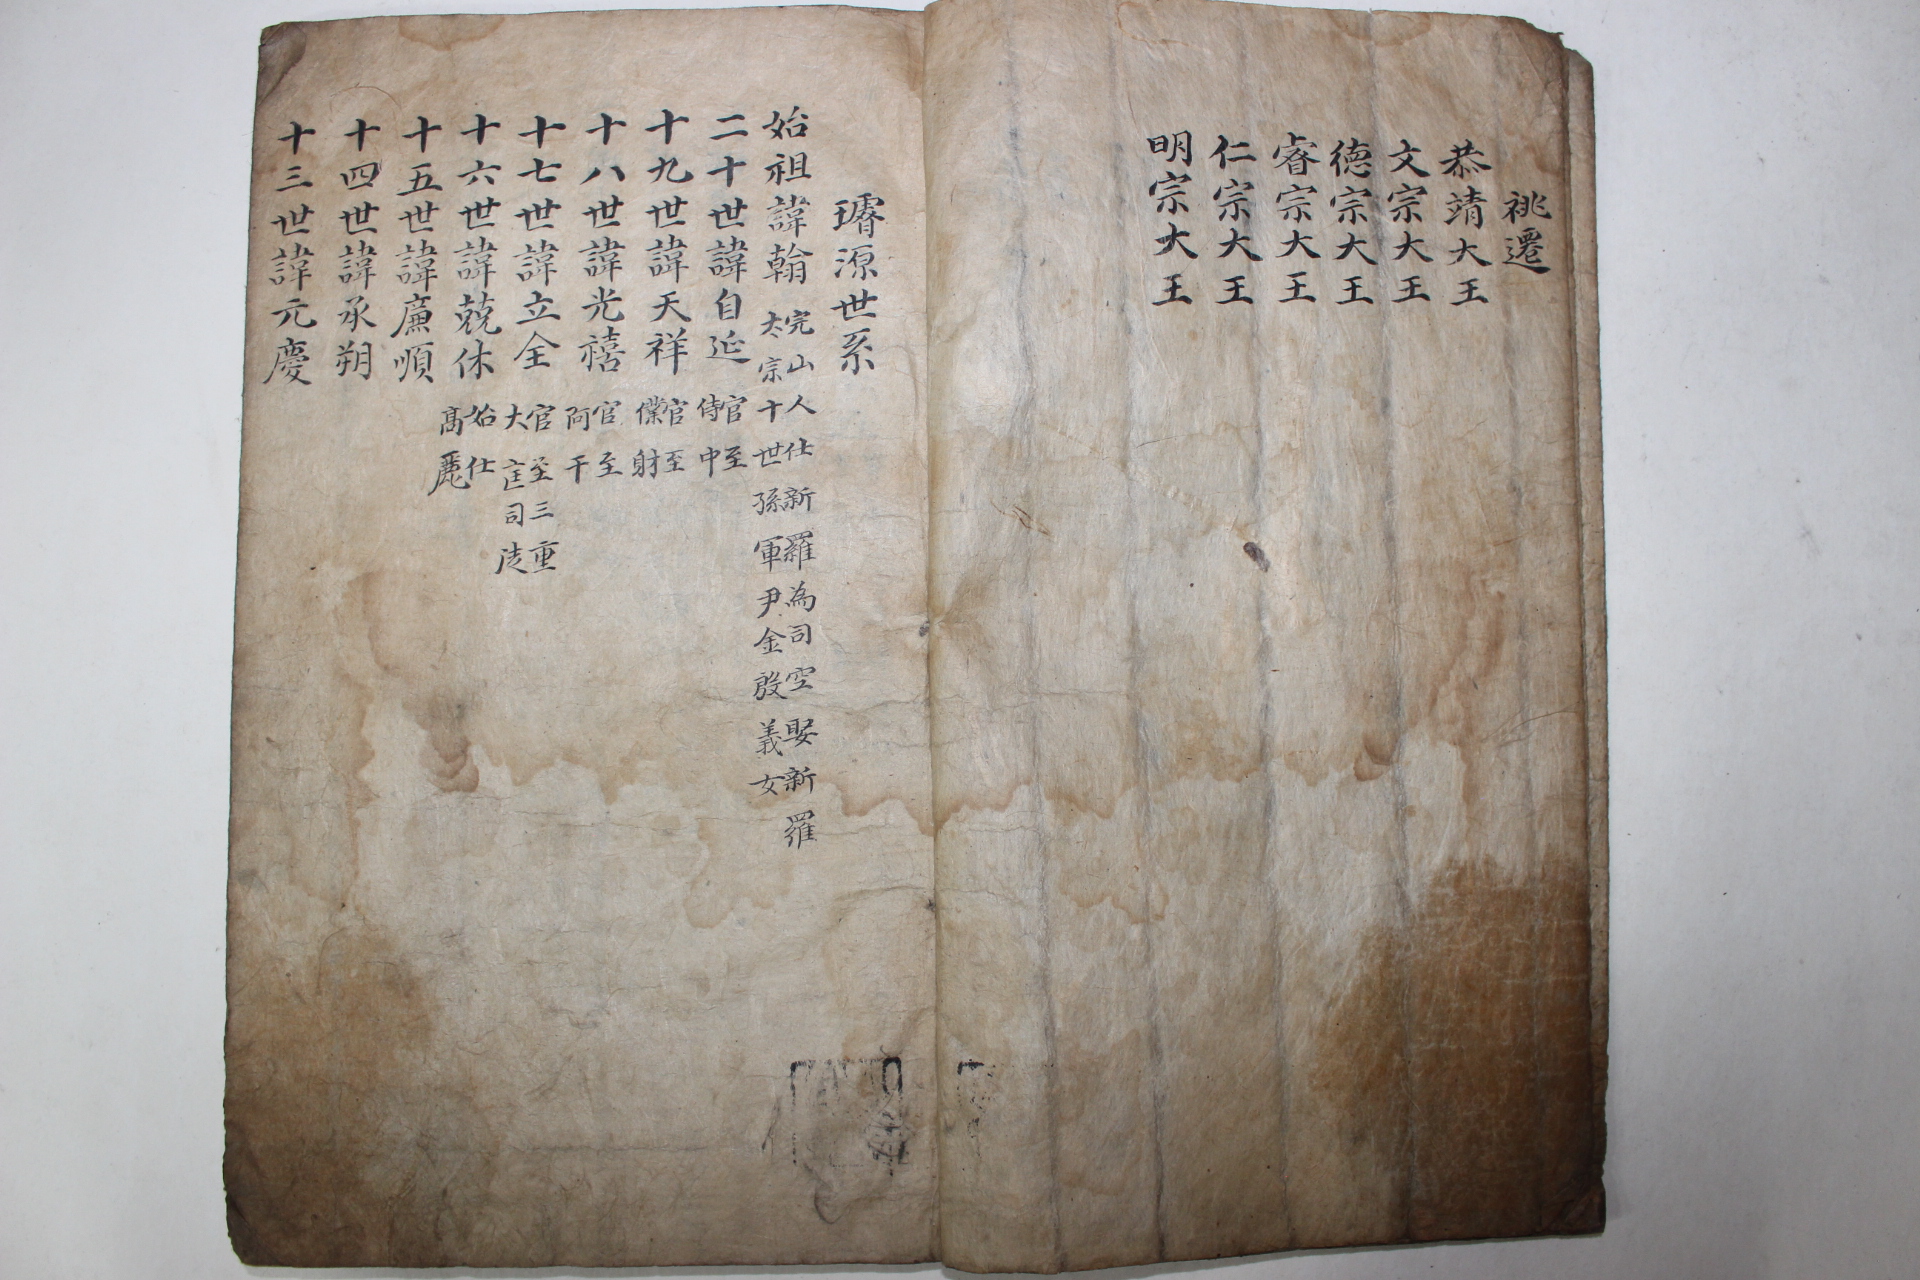 祧遷
恭靖大王
文宗大王
德宗大王
睿宗大王
仁宗大王
明宗大王
璿源世系
始祖諱翰 完山人仕新羅為司空娶新羅
太宗十世孫軍尹金殷義女
二十世諱自延 官至
侍中
十九世諱天祥 官至
僕射
十八世諱光禧 官至
阿干
十七世諱立全 官至三重
大匡司徒
十六世諱兢休 始仕
高麗
十五世諱廉順
十四世諱承朔
十三世諱元慶